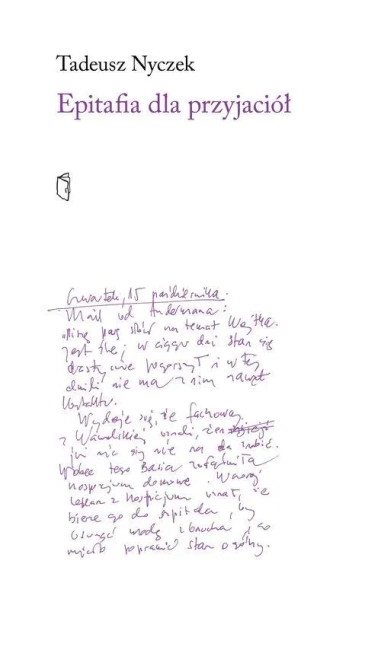 Tadeusz Nyczek
Epitafia dla przyjaciół
Czwartek, 15 października.
Mail od Andermana:
parę słów na temat Wojtka.
jest źlej, w ciągu dni stan się
drastycznie pogorszył i w tej
chwili nie ma z nim nawet
kontaktu.
Wydaje się, że fachowcy
z Wawelskiej uznali, że
już nic się nie da zrobić.
Wobec tego Basia załatwiła
hospicjum domowe. Wczoraj
lekarz z hospicjum uznał, że
bierze go do szpitala, by
usunąć wodę z brzucha, co
poprawić stan ogólny.